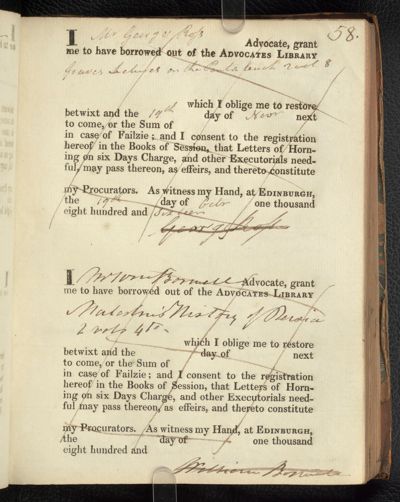 58.
I Mr George Ross Advocate, grant
me to have borrowed out of the ADVOCATES LIBRARY
Graves Lectures on the Pentateuch 2 vol 8
which I oblige me to restore
betwixt and the 19th day of Novr next
to come, or the Sum of
in case of Failzie; and I consent to the registration
hereof in the Books of Session, that Letters of Horn-
ing on six Days Charge, and other Executorials need-
ful, may pass thereon, as effeirs, and thereto constitute
my Procurators. As witness my Hand, at EDINBURGH,
the 19th day of one thousand
eight hundred and sixteen
George Ross
I Mr Wm Boswell Advocate, grant
me to have borrowed out of the ADVOCATES LIBRARY
Malcolm's History of Persia
2 vols 4to
which I oblige me to restore
betwixt and the day of next
to come, or the Sum of
in case of Failzie; and I consent to the registration
hereof in the Books of Session, that Letters of Horn-
ing on six Days Charge, and other Executorials need-
ful may pass thereon, as effeirs, and thereto constitute
my Procurators. As witness my Hand, at EDINBURGH,
the day of one thousand
eight hundred and
William Boswell